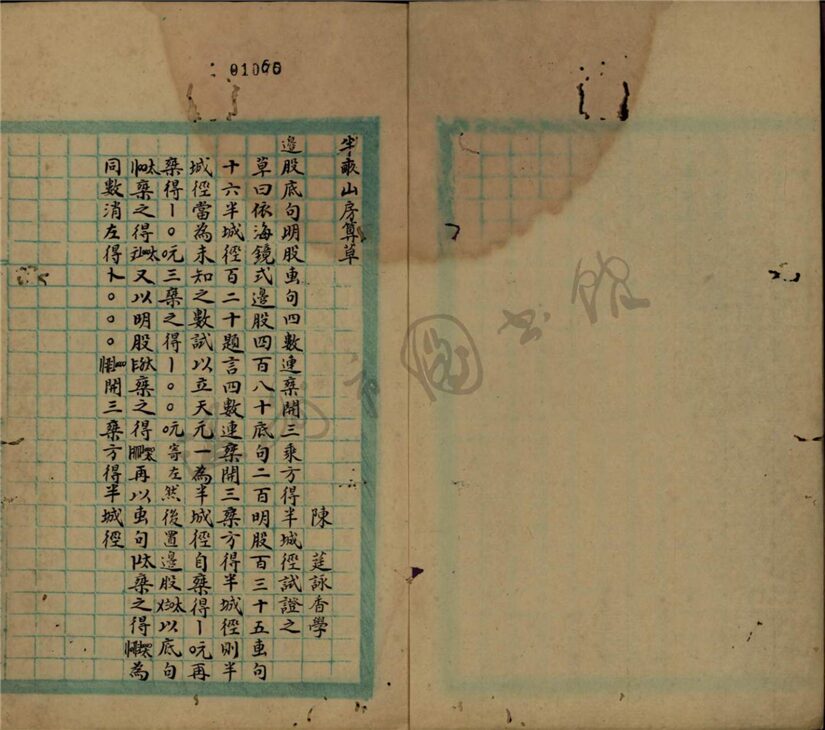 01066
半畝山房算草
陳 莛詠香學
邊股底句明股叀句四數連乘開三乘方得半城徑試證之
草曰依海鏡式邊股四百八十底句二百明股百三十五叀句
十六半城徑百二十題言四數連乘開三乘方得半城徑則半
城徑當為未知之數試以立天元一為半城徑自乘得〡○元再
乘得〡○○元三乘之得〡○○○元寄左然後置邊股太以底句
太乘之得太又以明股太乘之得再以叀句太乘之得為
同數消左得卜○○○開三乘方得半城徑
圖書館